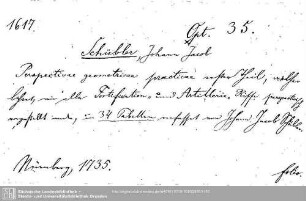 1617.
Gpt. 35.
Schübler, Johann Jacob
Perspectivae geometricae practicae erster Theil, welcher
lehret, wie alle Fortification- und Artillerie-Risse perspectivisch
in 34 Tabellen verfasset von Johann Jacob Schübler
Nürnberg, 1735.
folio.
Sächsische Landesbibliothek -
Staats- und Universitätsbibliothek Dresden